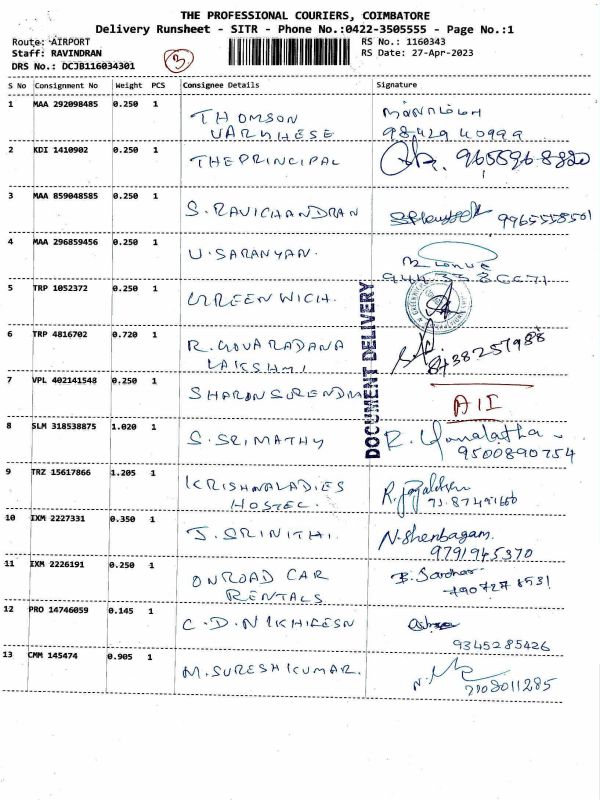 THE PROFESSIONAL COURIERS, COIMBATORE
Delivery Runsheet - SITR - Phone No.:0422-3505555 - Page No.:1
Route: AIRPORT
Staff: RAVINDRAN
DRS No.: DCJB116034301
3
RS No.: 1160343
RS Date: 27-Apr-2023
S No Consignment No Weight PCS Consignee Details Signature
1 MAA 292098485 0.250 1 THOMSON VARKHESE
98429 40999
2 KDI 1410902 0.250 1 THE PRINCIPAL
3 MAA 859048585 0.250 1 S. RAVICHANDRAN 9965558501
4 MAA 296859456 0.250 1 U. SARANYAN.
5 TRP 1052372 0.250 1 GREENWICH.
DOCUMENT DELIVERY
6 TRP 4816702 0.720 1 R. GOVARADANA LAKSHMI 8438257988
7 VPL 402141548 0.250 1 SHARON SURENDM AII
8 SLM 318538875 1.020 1 S. SRIMATHY
9500890754
9 TRZ 15617866 1.205 1 KRISHNA LADIES HOSTEL.
10 IXM 2227331 0.350 1 J. SRINITHI. N. Shenbagam.
9791945370
11 IXM 2226191 0.250 1 ONROAD CAR RENTALS
12 PRO 14746059 0.145 1 C.D. NIKHILESN
9345285426
13 CMM 145474 0.905 1 M. SURESHKUMAR.